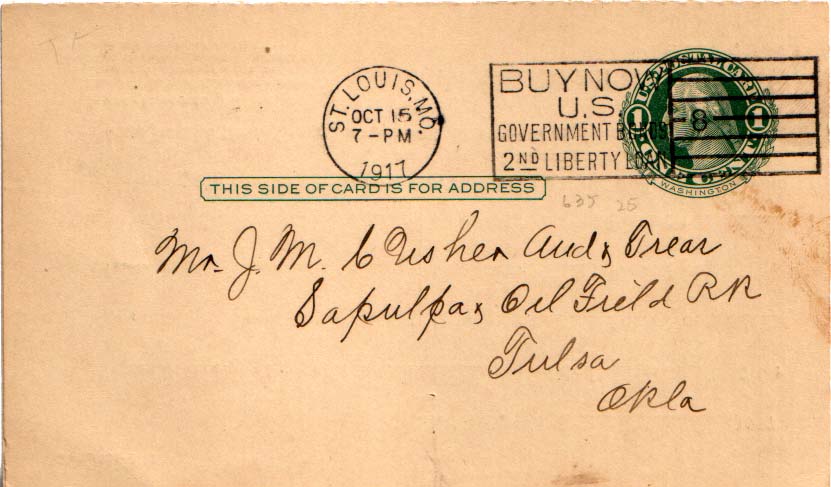 ST. LOUIS, MO.
OCT 15
7-PM
1917
BUY NOW
U.S.
GOVERNMENT BONDS
2ND LIBERTY LOAN
8
1 1
WASHINGTON
THIS SIDE OF CARD IS FOR ADDRESS
635 25
Mr. J. M. Usher Aud & Trear
Sapulpa & Oil Field RR
Tulsa
Okla